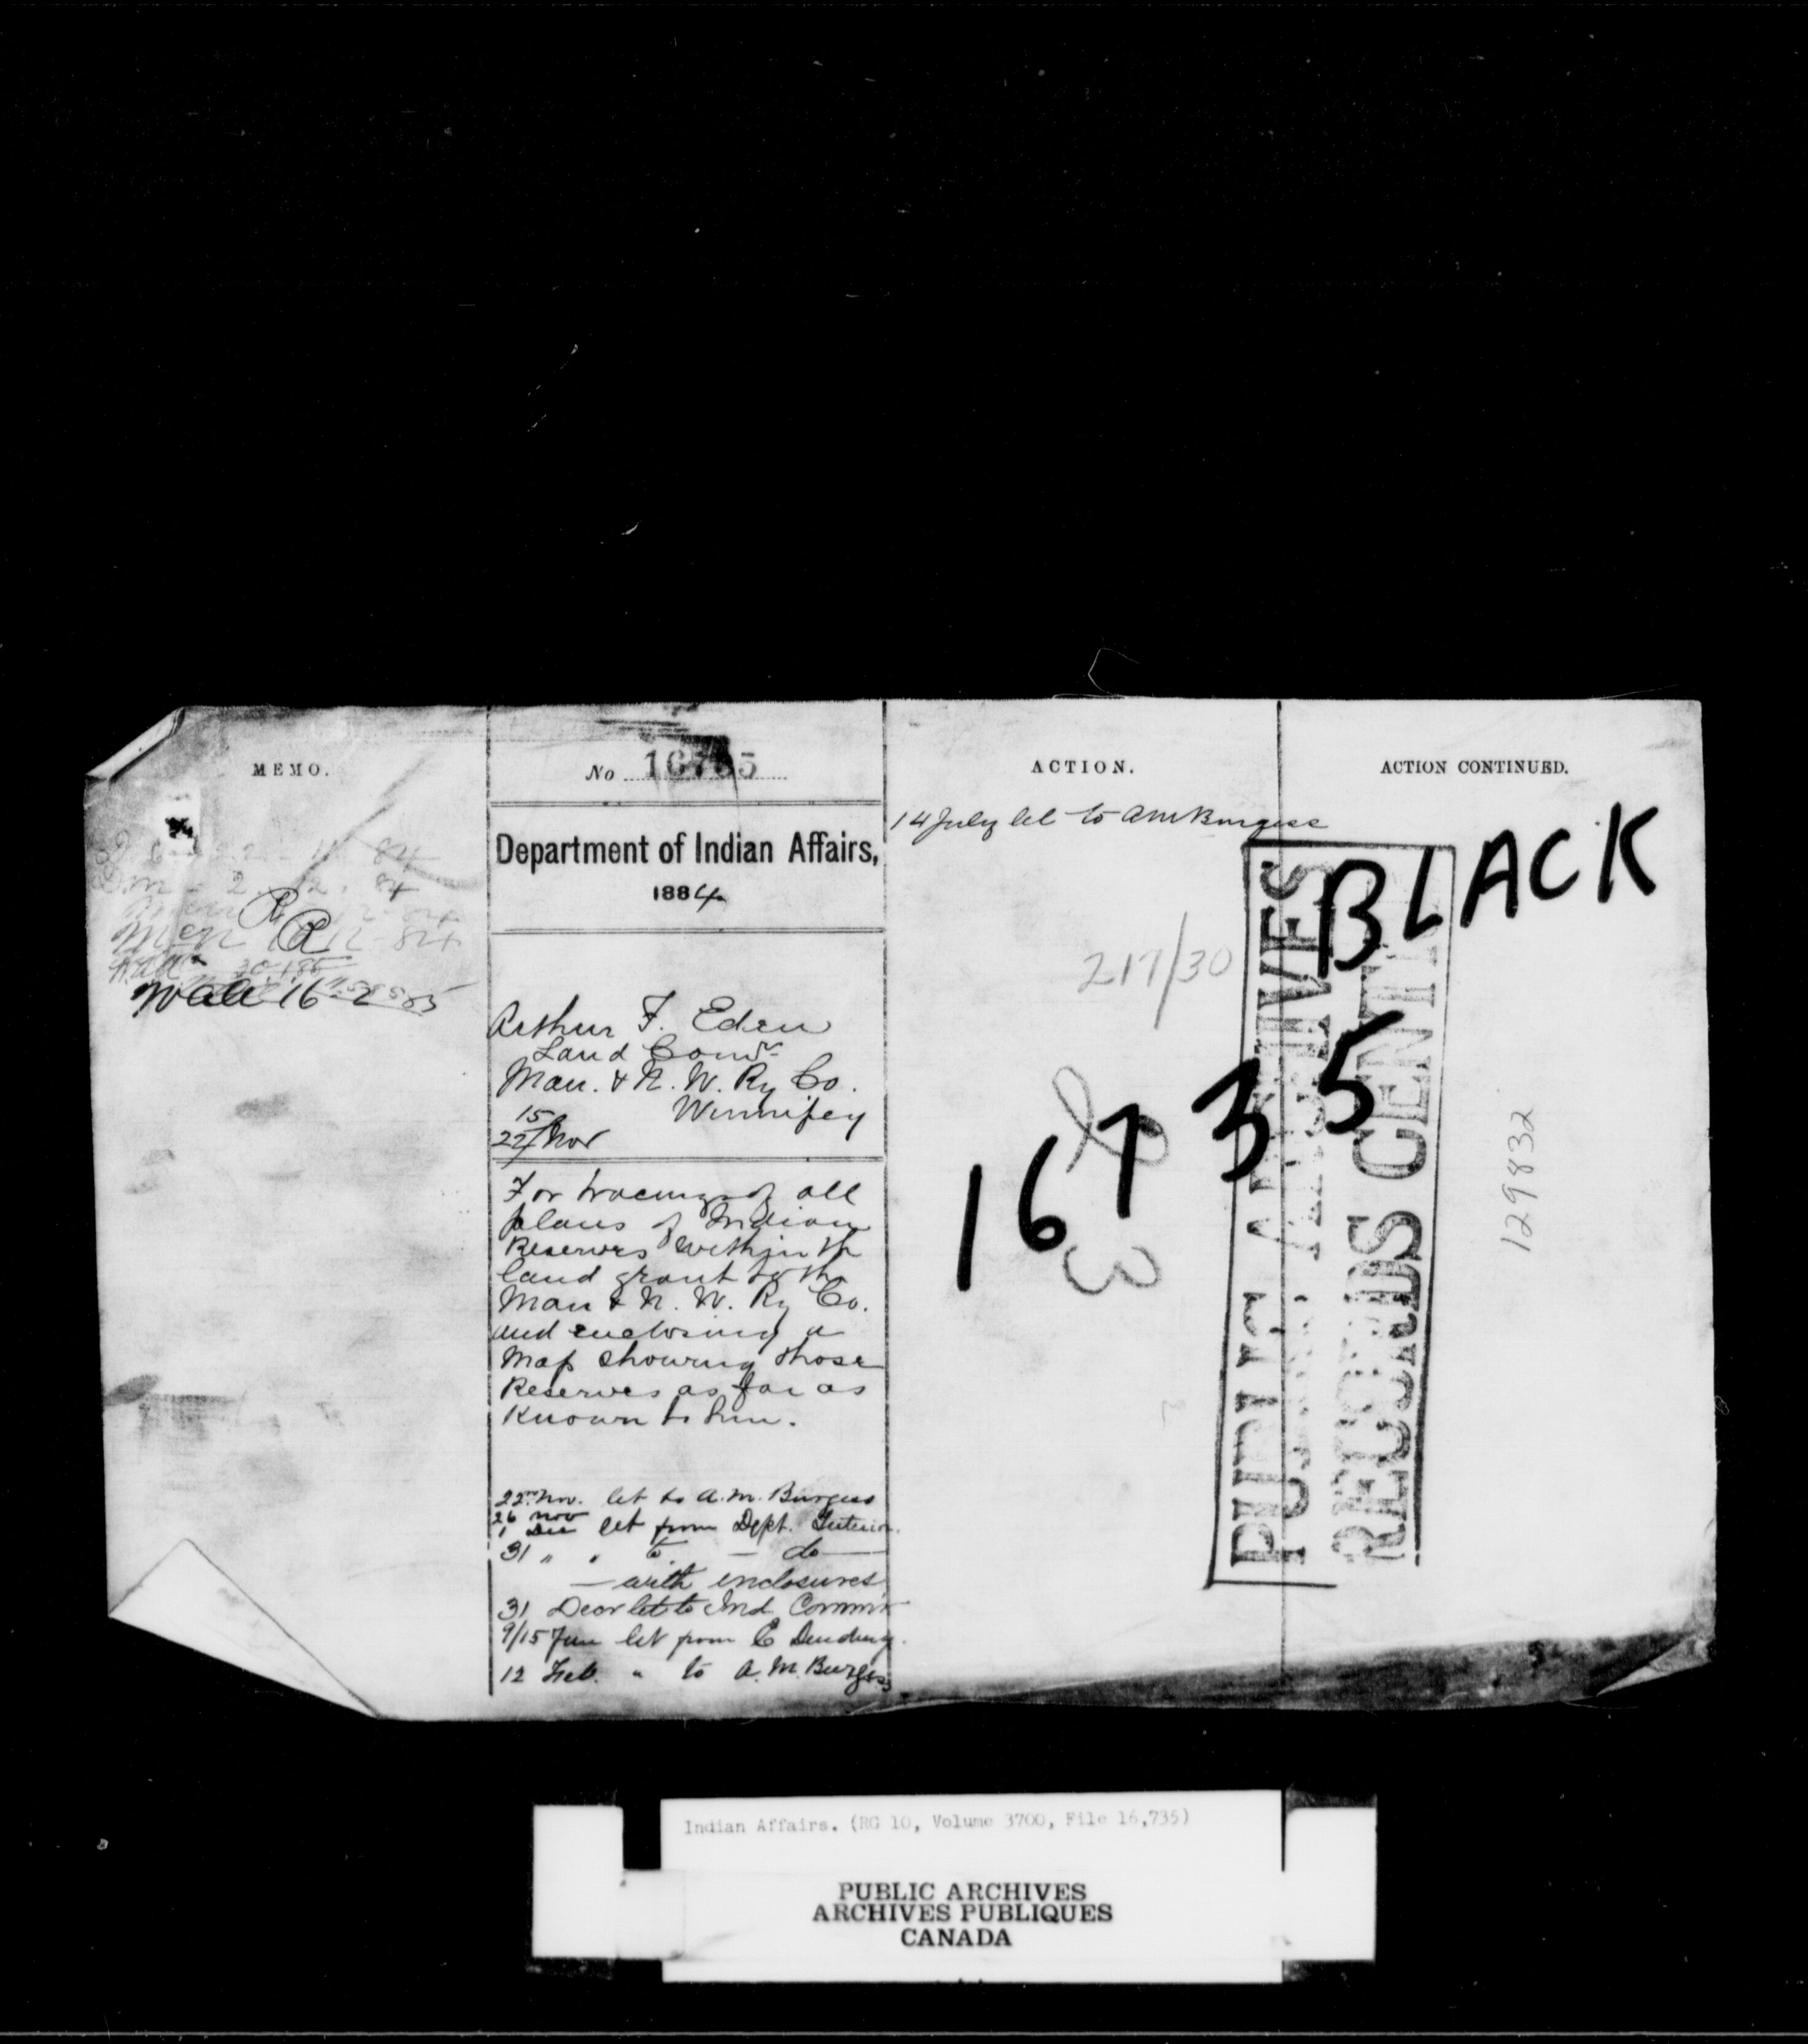 MEMO.
Wall 16-2-85
No 16735
Department of Indian Affairs,
1884
Arthur F. Eden
Land Comr
Man. & N. W. Ry Co.
Winnipeg
15/22 Nov
For tracings of all
plans of Indian
Reserves within the
land grant to the
Man & N. W. Ry Co.
and enclosing a
map showing those
Reserves as far as
known to him.
22nd Nov. let to A. M. Burgess
26 Nov
1 Dec let from Dept. Interior.
31 " " to — do —
— with enclosures
31 Decr let to Ind Commr
9/15 Jan let from E
12 Feb. " to A. M. Burgess
ACTION.
14 July let to AM Burgess
217/30
16735
ACTION CONTINUED.
BLACK
PUBLIC ARCHIVES
RECORDS CENTRE
129832
Indian Affairs. (RG 10, Volume 3700, File 16,735)
PUBLIC ARCHIVES
ARCHIVES PUBLIQUES
CANADA